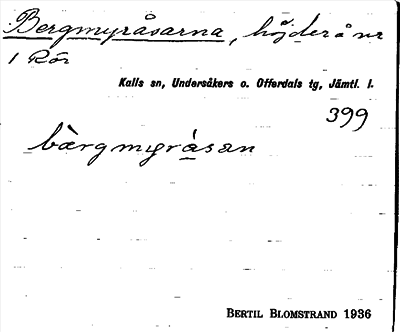 Bergmyråsarna, höjder å nr
1 Rör
Kalls sn, Undersåkers o. Offerdals tg, Jämtl. l.
399
bærgmyråsan
BERTIL BLOMSTRAND 1936